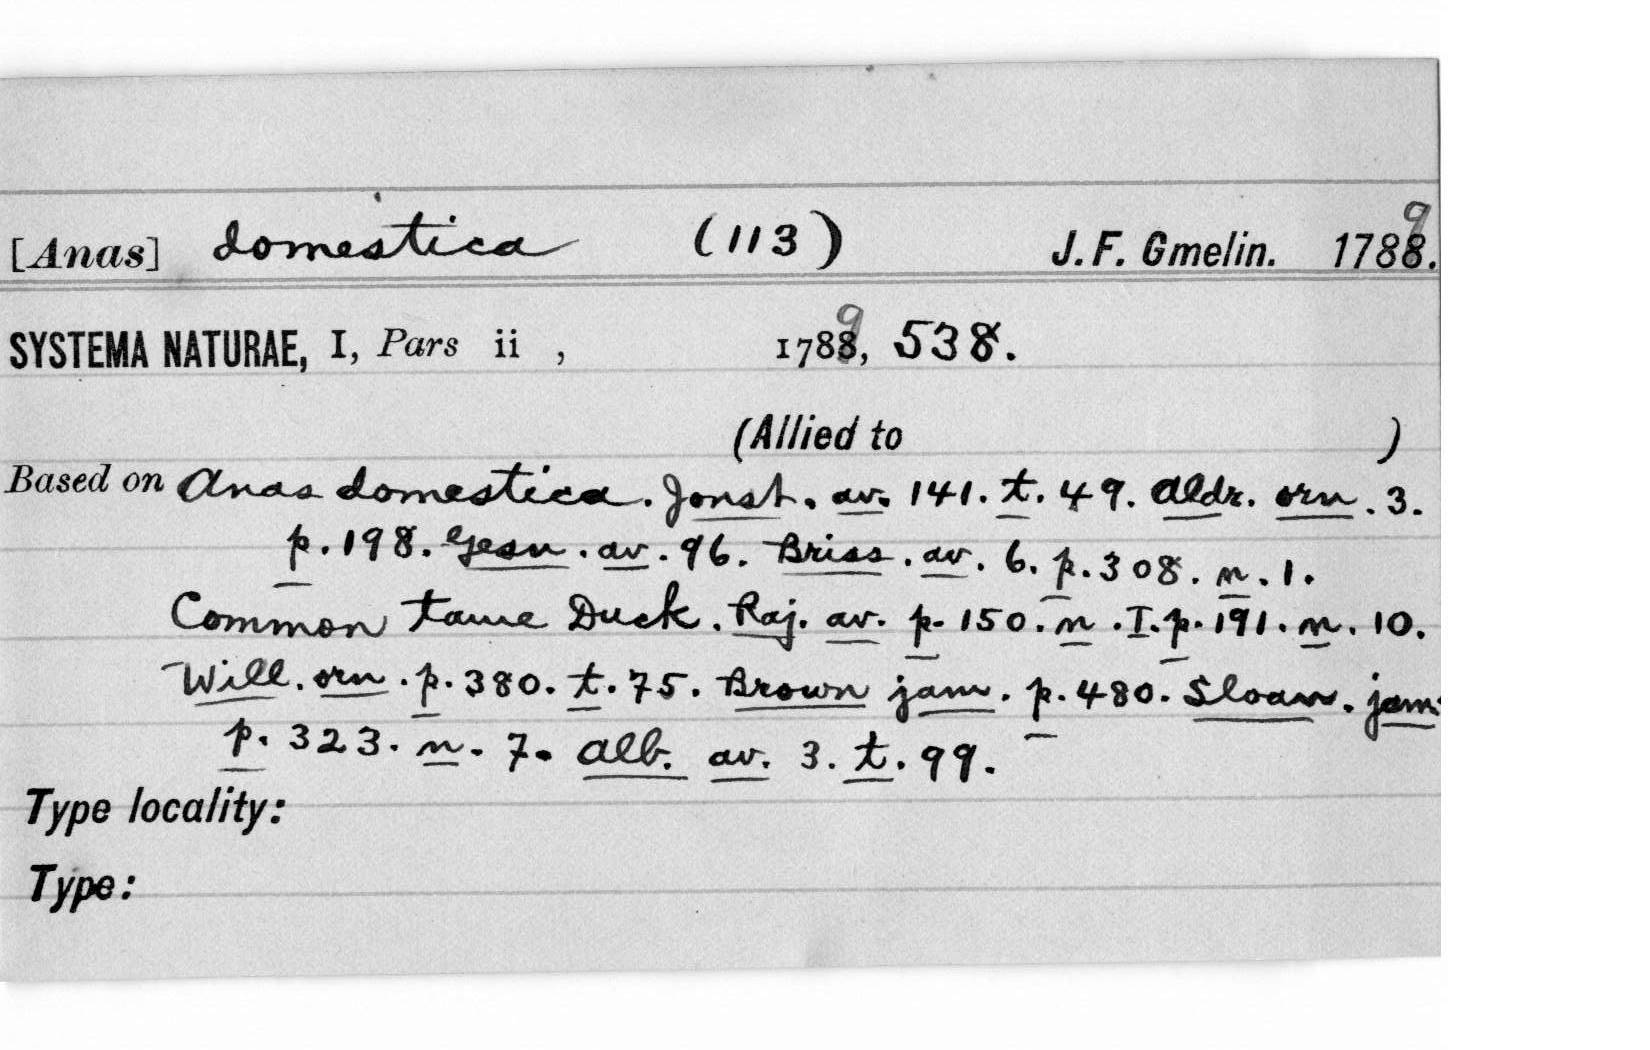 [Anas] domestica (113) J. F. Gmelin. 1789.
SYSTEMA NATURAE, I, Pars ii , 1789, 538.
(Allied to )
Based on Anas domestica. Jonst. av. 141. t. 49. Aldr. orn. 3.
p. 198. Gesn. av. 96. Briss. av. 6. p. 308. n. 1.
Common tame Duck. Raj. av. p. 150. n. I. p. 191. n. 10.
Will. orn. p. 380. t. 75. Brown jam. p. 480. Sloan. jam.
p. 323. n. 7. Alb. av. 3. t. 99.
Type locality:
Type: